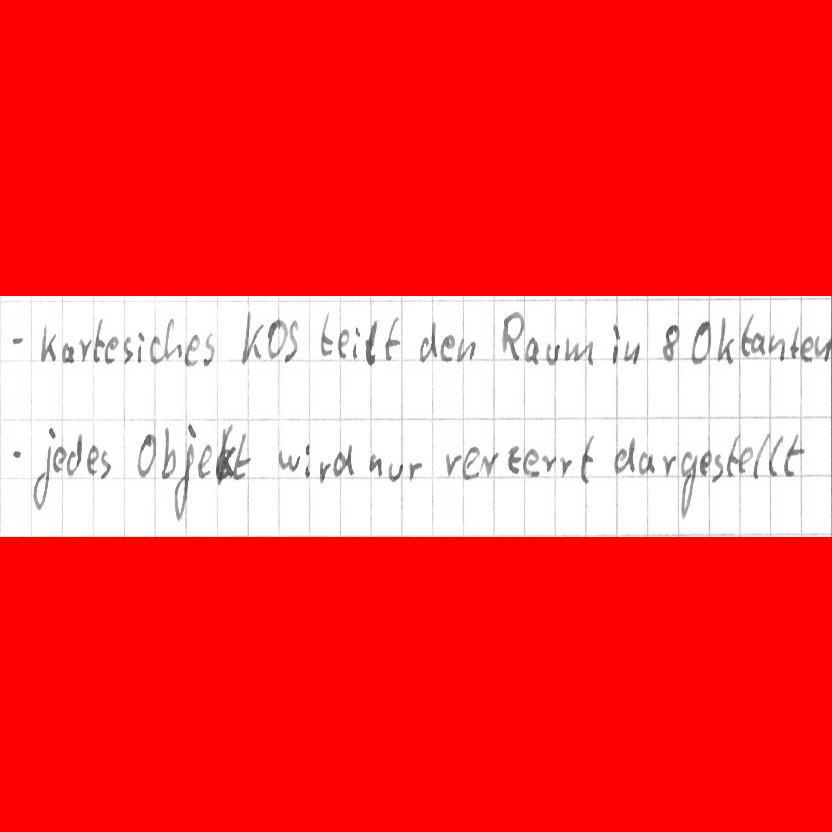 - kartesiches KOS teilt den Raum in 8 Oktanten
- jedes Objekt wird nur verzerrt dargestellt